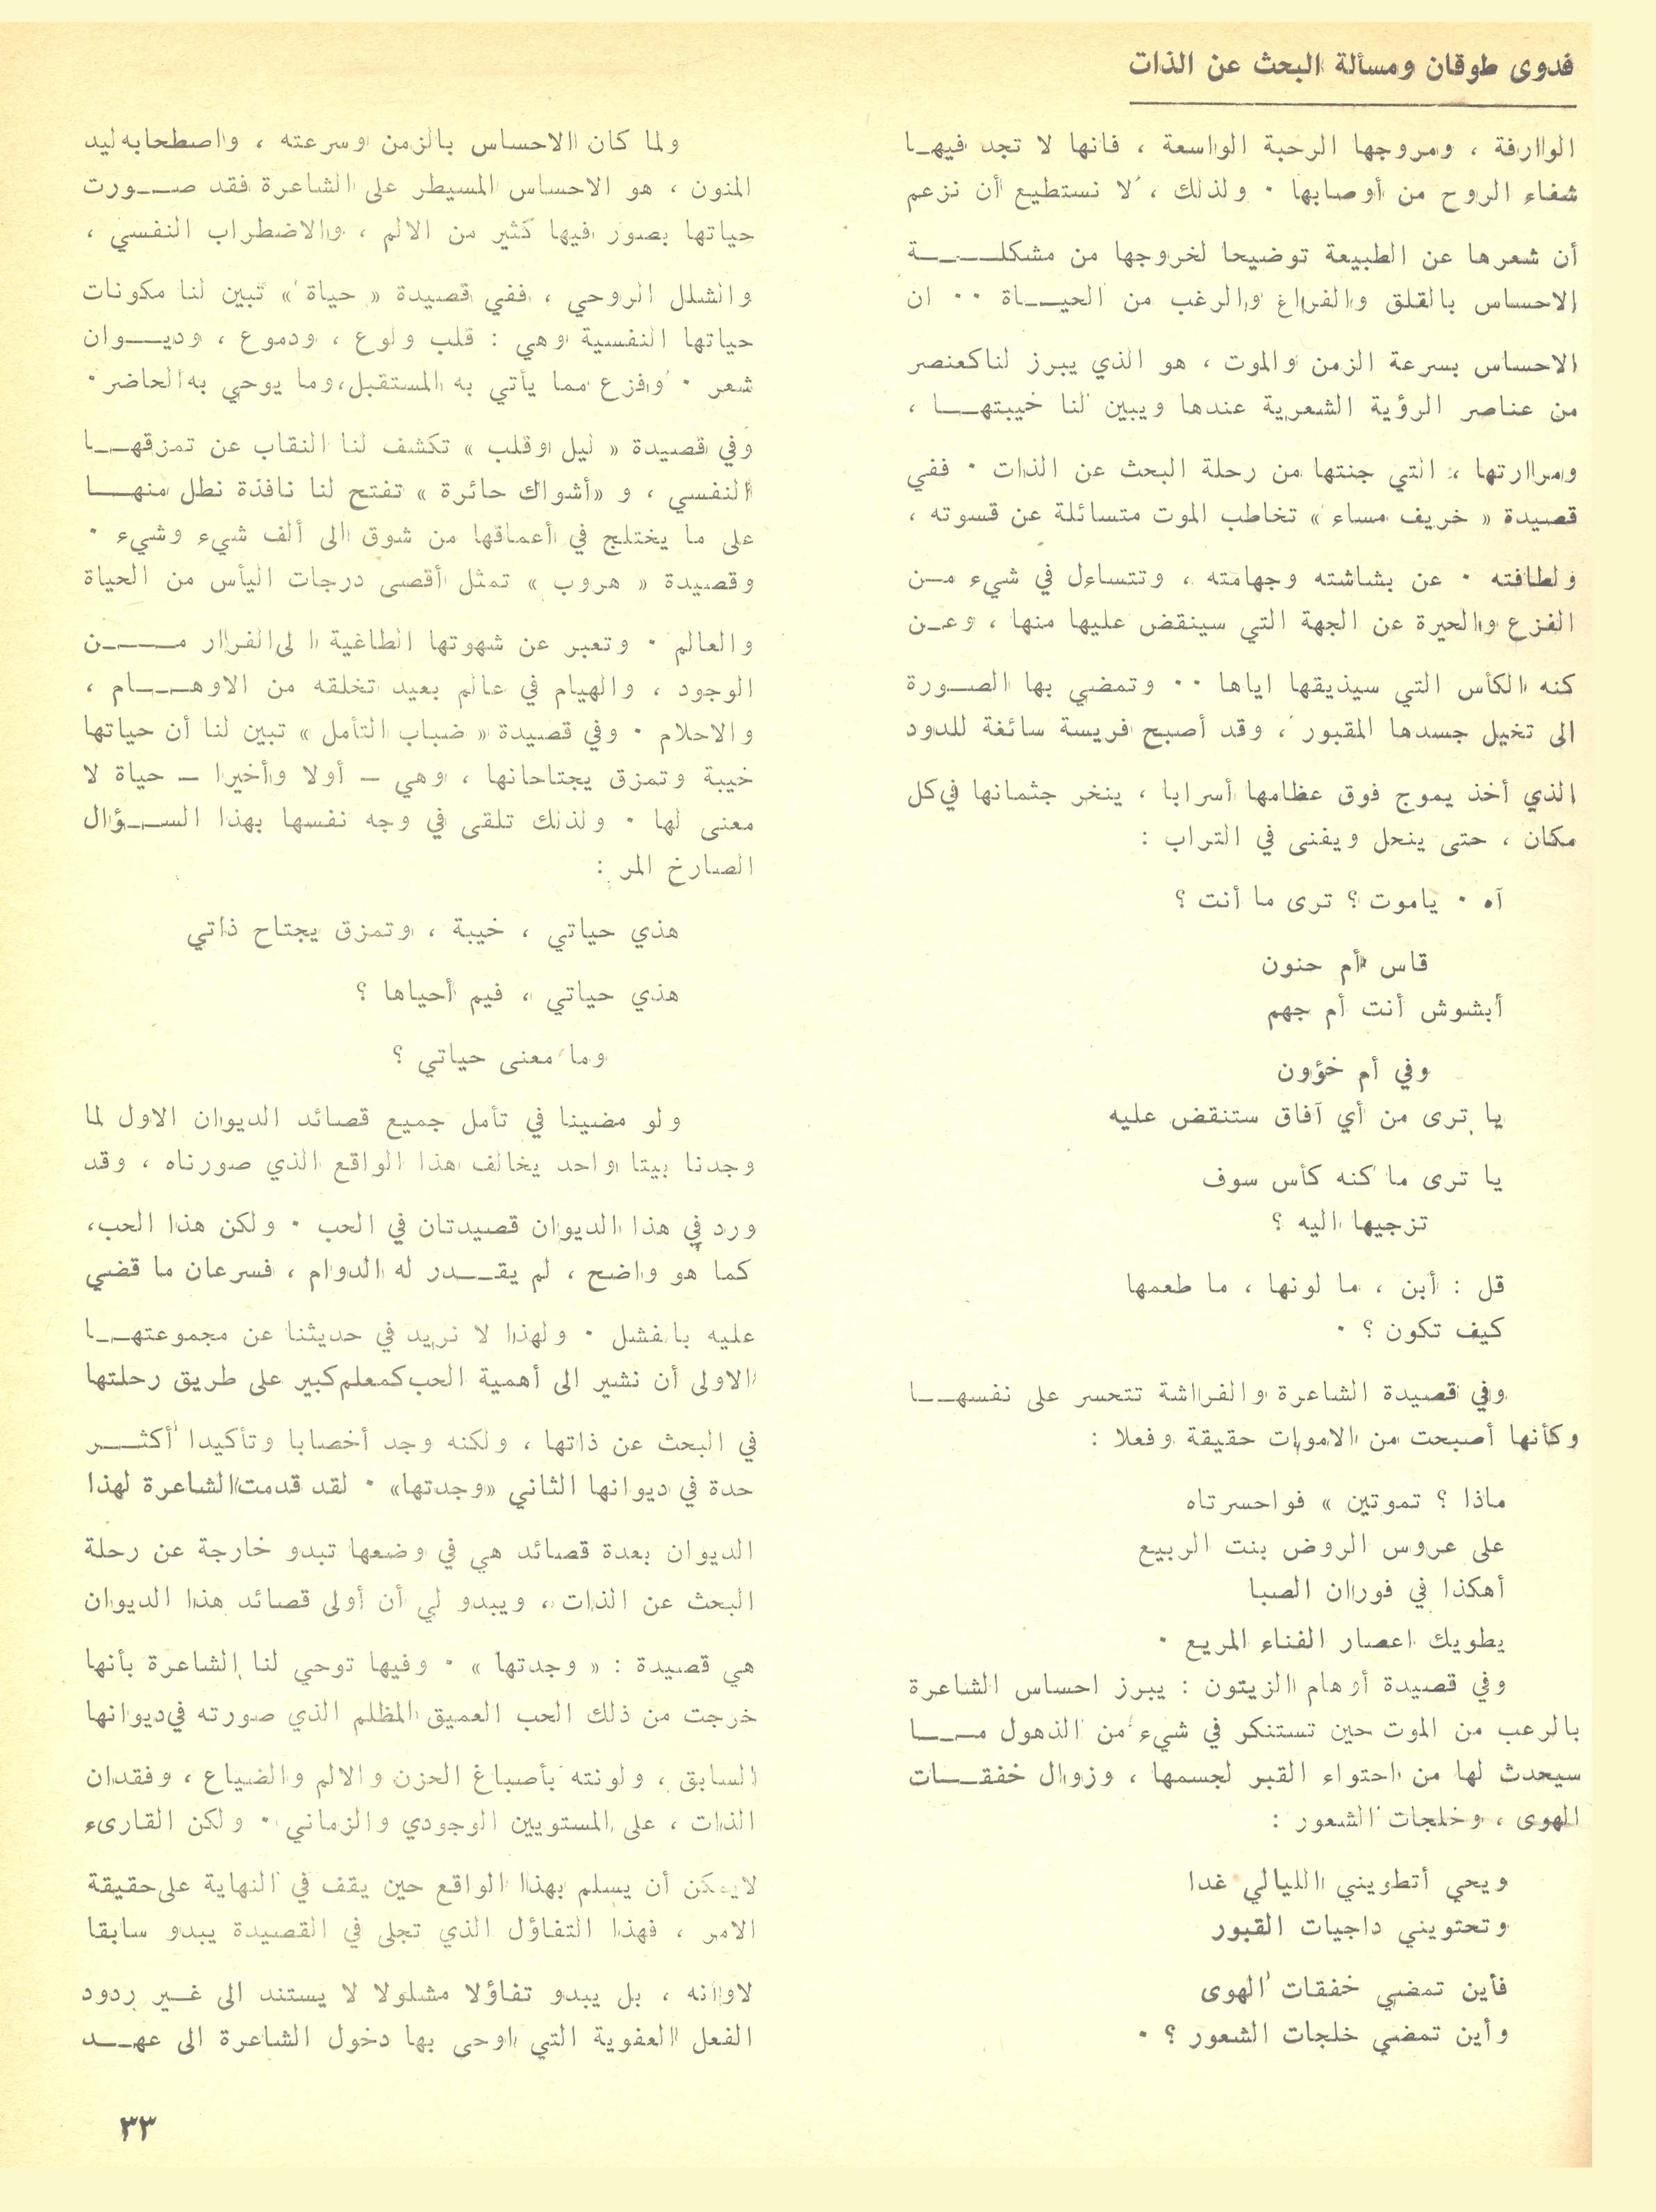 فدوى طوقان ومسألة البحث عن الذات
الوارفة ، ومروجها الرحبة الواسعة ، فانها لا تجد فيهـا
شفاء الروح من أوصابها ٠ ولذلك ، لا نستطيع أن نزعم
أن شعرها عن الطبيعة توضيحا لخروجها من مشكلــــة
الاحساس بالقلق والفراغ والرغب من الحيـاة ٠٠ ان
الاحساس بسرعة الزمن والموت ، هو الذي يبرز لنا كعنصر
من عناصر الرؤية الشعرية عندها ويبين لنا خيبتهـا ،
ومرارتها ، التي جنتها من رحلة البحث عن الذات ٠ ففي
قصيدة « خريف مساء » تخاطب الموت متسائلة عن قسوته ،
ولطافته ٠ عن بشاشته وجهامته ، وتتساءل في شيء مـن
الفزع والحيرة عن الجهة التي سينقض عليها منها ، وعـن
كنه الكأس التي سيذيقها اياها ٠٠ وتمضي بها الصـورة
الى تخيل جسدها المقبور ، وقد أصبح فريسة سائغة للدود
الذي أخذ يموج فوق عظامها أسرابا ، ينخر جثمانها في كل
مكان ، حتى ينحل ويفنى في التراب :
آه ٠ ياموت ؟ ترى ما أنت ؟
قاس أم حنون
أبشوش أنت أم جهم
وفي أم خؤون
يا ترى من أي آفاق ستنقض عليه
يا ترى ما كنه كأس سوف
تزجيها اليه ؟
قل : أبن ، ما لونها ، ما طعمها
كيف تكون ؟ ٠
وفي قصيدة الشاعرة والفراشة تتحسر على نفسهـا
وكأنها أصبحت من الاموات حقيقة وفعلا :
ماذا ؟ تموتين » فواحسرتاه
على عروس الروض بنت الربيع
أهكذا في فوران الصبا
يطويك اعصار الفناء المريع ٠
وفي قصيدة أوهام الزيتون : يبرز احساس الشاعرة
بالرعب من الموت حين تستنكر في شيء من الذهول مـا
سيحدث لها من احتواء القبر لجسمها ، وزوال خفقـات
الهوى ، وخلجات الشعور :
ويحي أتطويني الليالي غدا
وتحتويني داجيات القبور
فأين تمضي خفقات الهوى
وأين تمضي خلجات الشعور ؟ ٠
ولما كان الاحساس بالزمن وسرعته ، واصطحابه ليد
المنون ، هو الاحساس المسيطر على الشاعرة فقد صـورت
حياتها بصور فيها كثير من الالم ، والاضطراب النفسي ،
والشلل الروحي ، ففي قصيدة « حياة » تبين لنا مكونات
حياتها النفسية وهي : قلب ولوع ، ودموع ، وديـوان
شعر ٠ وفزع مما يأتي به المستقبل، وما يوحي به الحاضر ٠
وفي قصيدة « ليل وقلب » تكشف لنا النقاب عن تمزقهـا
النفسي ، و «أشواك حائرة » تفتح لنا نافذة نطل منهـا
على ما يختلج في أعماقها من شوق الى ألف شيء وشيء ٠
وقصيدة « هروب » تمثل أقصى درجات اليأس من الحياة
والعالم ٠ وتعبر عن شهوتها الطاغية الى الفرار مـــن
الوجود ، والهيام في عالم بعيد تخلقه من الاوهـام ،
والاحلام ٠ وفي قصيدة « ضباب التأمل » تبين لنا أن حياتها
خيبة وتمزق يجتاحانها ، وهي – أولا وأخيرا – حياة لا
معنى لها ٠ ولذلك تلقى في وجه نفسها بهذا السـؤال
الصارخ المر :
هذي حياتي ، خيبة ، وتمزق يجتاح ذاتي
هذي حياتي ، فيم أحياها ؟
وما معنى حياتي ؟
ولو مضينا في تأمل جميع قصائد الديوان الاول لما
وجدنا بيتا واحد يخالف هذا الواقع الذي صورناه ، وقد
ورد في هذا الديوان قصيدتان في الحب ٠ ولكن هذا الحب،
كما هو واضح ، لم يقـدر له الدوام ، فسرعان ما قضي
عليه بالفشل ٠ ولهذا لا نريد في حديثنا عن مجموعتهـا
الاولى أن نشير الى أهمية الحب كمعلم كبير على طريق رحلتها
في البحث عن ذاتها ، ولكنه وجد أخصابا وتأكيدا أكثـر
حدة في ديوانها الثاني «وجدتها» ٠ لقد قدمت الشاعرة لهذا
الديوان بعدة قصائد هي في وضعها تبدو خارجة عن رحلة
البحث عن الذات ، ويبدو لي أن أولى قصائد هذا الديوان
هي قصيدة : « وجدتها » ٠ وفيها توحي لنا الشاعرة بأنها
خرجت من ذلك الحب العميق المظلم الذي صورته في ديوانها
السابق ، ولونته بأصباغ الحزن والالم والضياع ، وفقدان
الذات ، على المستويين الوجودي والزماني ٠ ولكن القارىء
لايمكن أن يسلم بهذا الواقع حين يقف في النهاية على حقيقة
الامر ، فهذا التفاؤل الذي تجلى في القصيدة يبدو سابقا
لاوانه ، بل يبدو تفاؤلا مشلولا لا يستند الى غـير ردود
الفعل العفوية التي اوحى بها دخول الشاعرة الى عهـد
٣٣